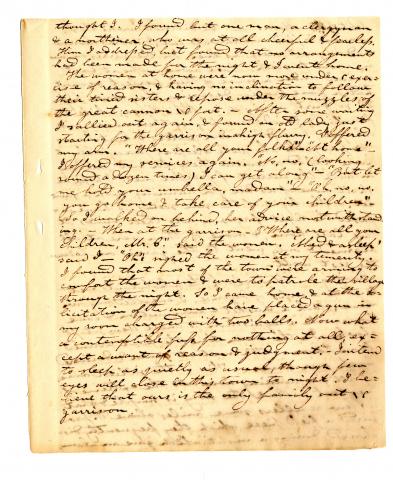 thought I. I found but one man, a clergyman
& a northerner, who was at all cheerful & fearless.
Him I addressed, but found that no arrangements
had been made for the night & I went home.
The women at home were now more under exer-
cise of reason, & having no inclination to follow
their timid sisters & repose under the muzzles of
the great cannon, I sat. After some waiting
I sallied out again, & found a lady just
starting for the garrison in a high flurry. I offered
my arm. "Where are all your folks?" "at home"
I offered my services again. "No, no, (looking
round a dozen times) I can get along" "But let
me hold your umbrella, madam" "Oh no, no,
you go home, & take care of your children"
So I walked on behind, her advice notwithstand
ing. — When at the garrison — "Where are all your
children, Mr. C" said the women, "Abed & asleep"
said I — "Oh" sighed the women at my temerity.
I found that most of the town were arming to
comfort the women & were to patrole the village
through the night. So I came home, & at the so-
licitation of the women have placed a gun in
my room charged with two balls. Now what
a contemptible fuss for nothing at all, ex-
cept a want of reason & judgment, — I intend
to sleep as quietly as usual, though few
eyes will close in this town to night. I be-
lieve that ours is the only family out of
garrison